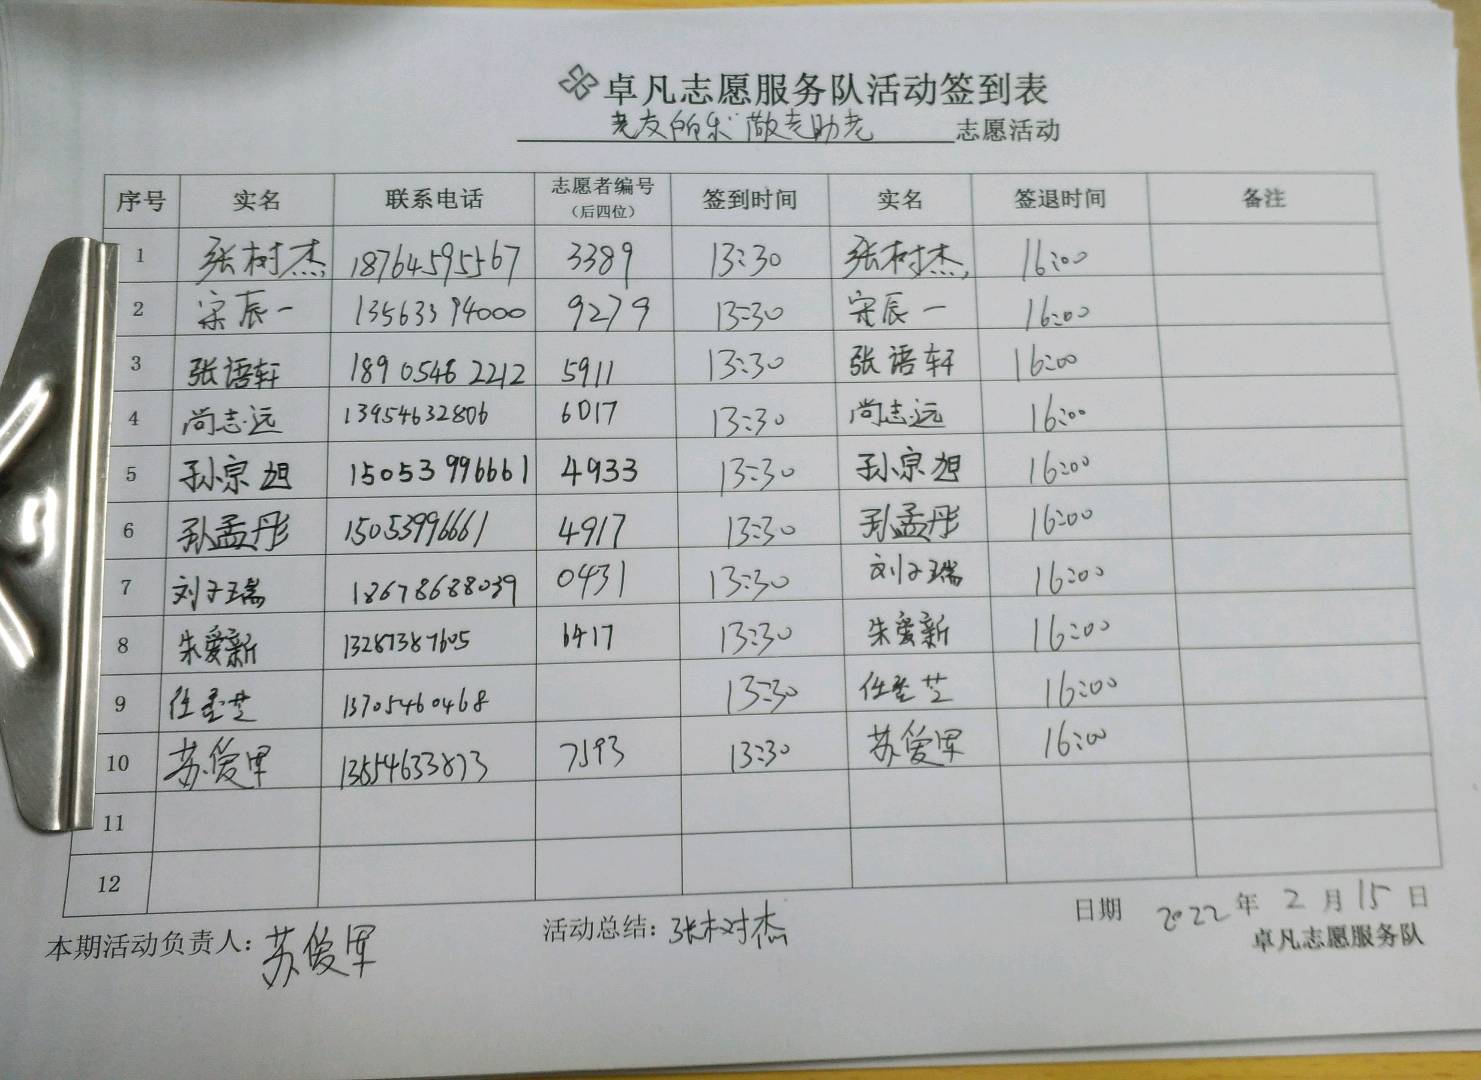 卓凡志愿服务队活动签到表
老友所乐 敬老助老 志愿活动
序号 实名 联系电话 志愿者编号（后四位） 签到时间 实名 签退时间 备注
1 张树杰 18764595567 3389 13:30 张树杰 16:00
2 宋辰一 13563394000 9279 13:30 宋辰一 16:00
3 张语轩 18905462212 5911 13:30 张语轩 16:00
4 尚志远 13954632806 6017 13:30 尚志远 16:00
5 孙宗旭 15053996661 4933 13:30 孙宗旭 16:00
6 孙孟彤 15053996661 4917 13:30 孙孟彤 16:00
7 刘子瑞 18678688039 0431 13:30 刘子瑞 16:00
8 朱爱新 13287387605 6417 13:30 朱爱新 16:00
9 任圣芝 13705460468 13:30 任圣芝 16:00
10 苏俊军 13854633873 7593 13:30 苏俊军 16:00
11
12
本期活动负责人：苏俊军 活动总结：张树杰 日期 2022年2月15日
卓凡志愿服务队